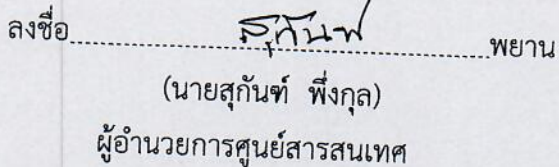 ลงชื่อ สุกันฑ์ พยาน
(นายสุกันฑ์ พึ่งกุล)
ผู้อำนวยการศูนย์สารสนเทศ